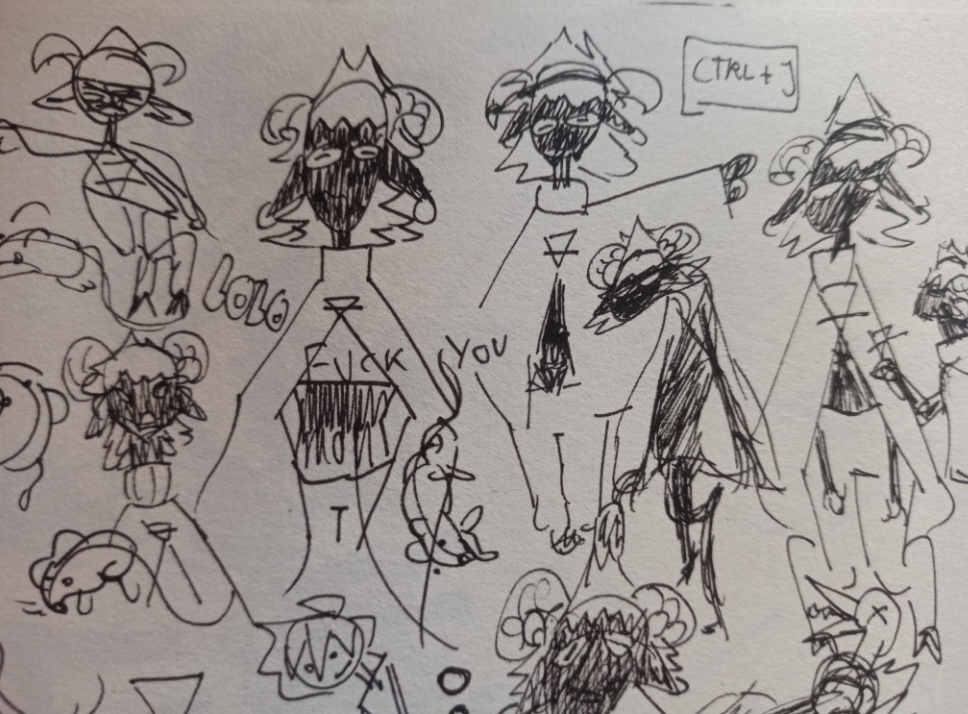 CTRL + J
LOLO
FUCK YOU